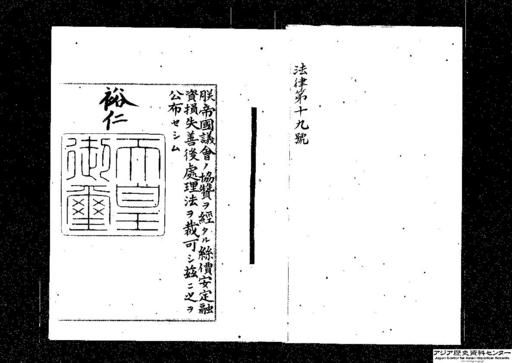 法律第十九號
朕帝國議會ノ協贊ヲ經タル絲價安定融
資損失善後處理法ヲ裁可シ茲ニ之ヲ
公布セシム
裕仁
天皇
御璽
アジア歴史資料センター
Japan Center for Asian Historical Records